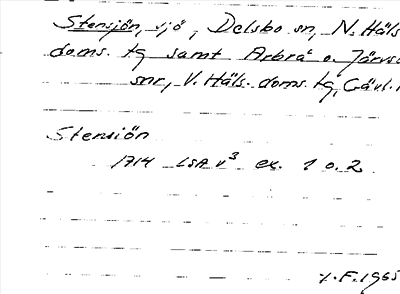 Stensjön, sjö, Delsbo sn, N. Häls
doms. tg samt Arbrå o. Järvsö
snr, V. Häls. doms. tg, Gävl. l
Stensiön
1714 LSA v³ ex. 1 o. 2
F. 1965